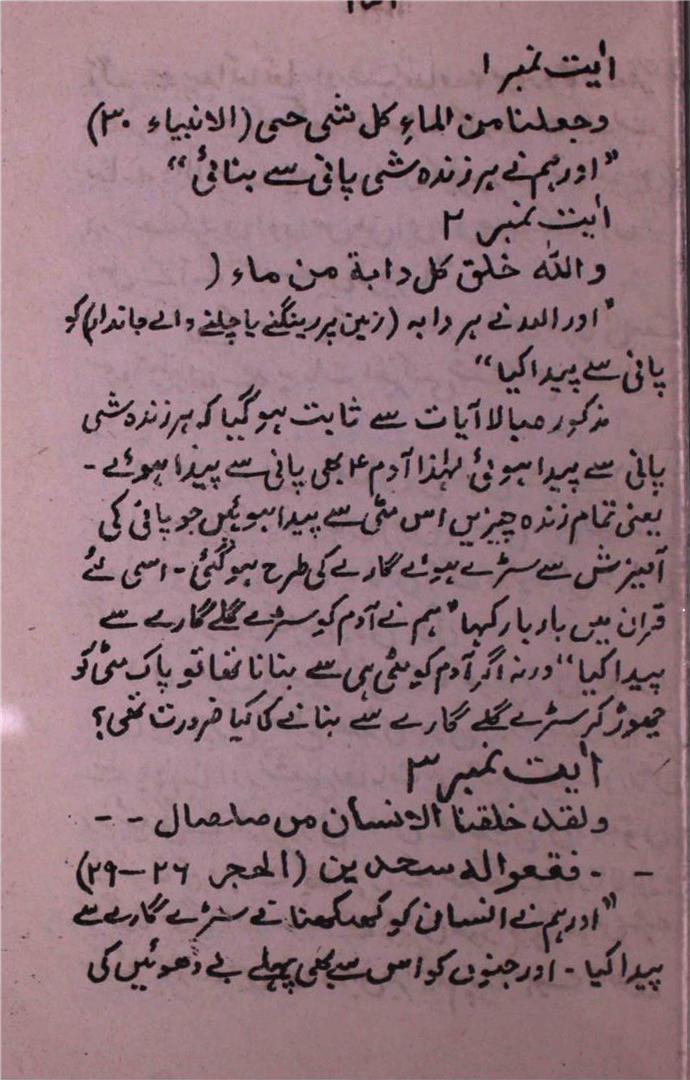 اٰیت نمبر ۱
وجعلنا من الماءِ کل شی حی (الانبیاء ۳۰)
"اور ہم نے ہر زندہ شی پانی سے بنائی"
اٰیت نمبر ۲
واللہ خلق کل دابة من ماء (
"اور اللہ نے ہر دابہ (زمین پر رینگنے یا چلنے والے جاندار) کو
پانی سے پیدا کیا"
مذکورہ بالا آیات سے ثابت ہو گیا کہ ہر زندہ شی
پانی سے پیدا ہوئی لہٰذا آدم ؑ بھی پانی سے پیدا ہوئے -
یعنی تمام زندہ چیزیں اس مٹی سے پیدا ہوئیں جو پانی کی
آمیزش سے سڑے ہوئے گارے کی طرح ہو گئی - اسی لئے
قران میں بار بار کہا "ہم نے آدم کو سڑے گلے گارے سے
پیدا کیا" ورنہ اگر آدم کو مٹی ہی سے بنانا تھا تو پاک مٹی کو
چھوڑ کر سڑے گلے گارے سے بنانے کا کیا ضرورت تھی؟
اٰیت نمبر ۳
ولقد خلقنا الانسان من صلصال - -
- - فقعوا لہ سٰجدین (الحجر ۲۶-۲۹)
"اور ہم نے انسان کو کھنکھناتے سڑے گارے سے
پیدا کیا - اور جنوں کو اس سے بھی پہلے بے دھوئیں کی